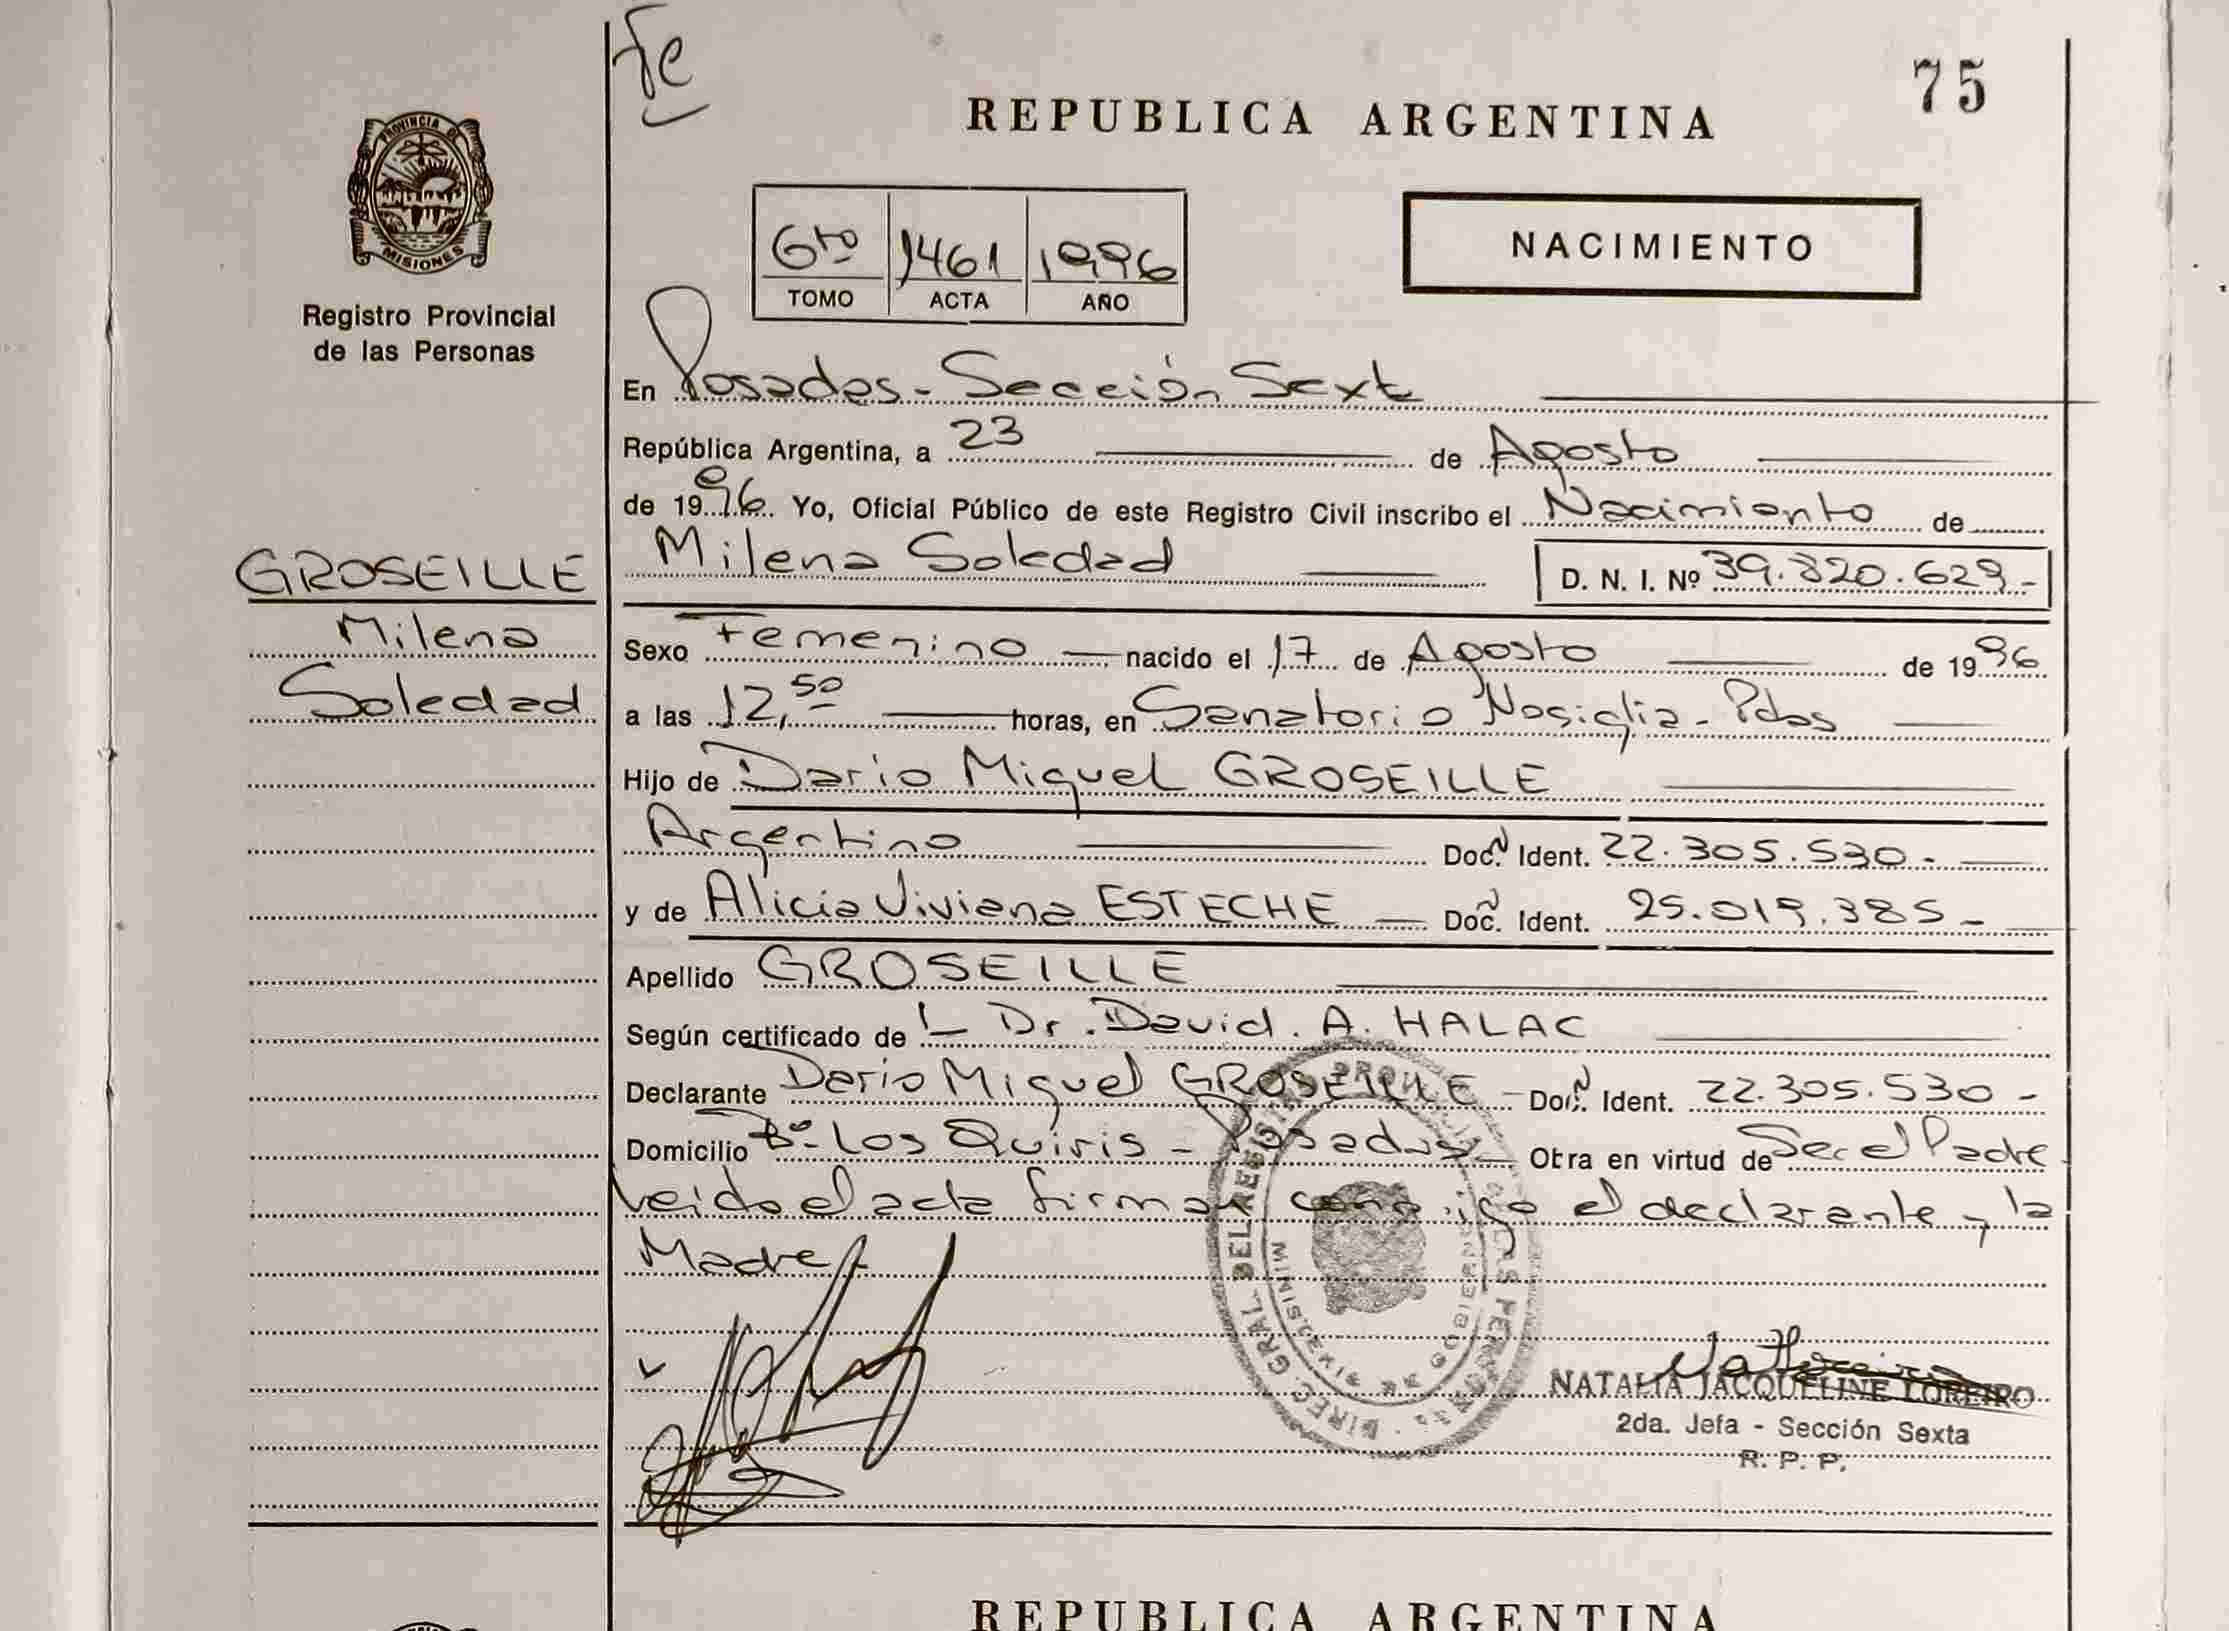 Fe
75
REPUBLICA ARGENTINA
PROVINCIA DE
MISIONES
Registro Provincial
de las Personas
NACIMIENTO
6to 1461 1996
TOMO ACTA AÑO
En Posadas - Sección Sext
República Argentina, a 23 de Agosto
de 1996. Yo, Oficial Público de este Registro Civil inscribo el Nacimiento de
GROSEILLE
Milena Soledad D. N. I. Nº 39.820.629.-
Milena
Soledad
Sexo Femenino nacido el 17 de Agosto de 1996
a las 12,50 horas, en Sanatorio Nosiglia - Pdas
Hijo de Dario Miguel GROSEILLE
Argentino Doc. Ident. 22.305.530.-
y de Alicia Viviana ESTECHE Doc. Ident. 25.019.385-
Apellido GROSEILLE
Según certificado de L Dr. David. A. HALAC
Declarante Dario Miguel GROSEILLE - Doc. Ident. 22.305.530-
Domicilio Bº Los Quiris - Posadas Obra en virtud de Ser el Padre
leido el acta firman conmigo el declarante y la
Madre
DIREC. GRAL DEL REGISTRO PROVINCIAL DE LAS PERSONAS
MINISTERIO DE GOBIERNO
NATALIA JACQUELINE LOREIRO
2da. Jefa - Sección Sexta
R. P. P.
REPUBLICA ARGENTINA